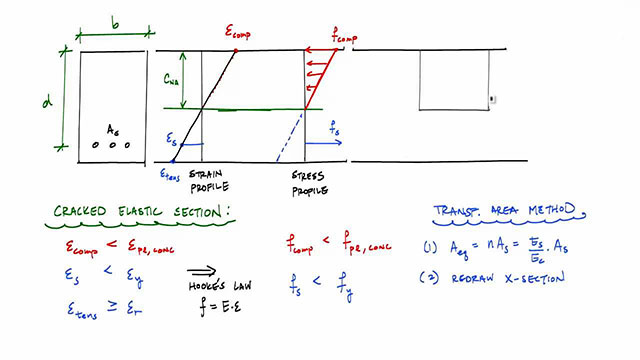 b
ε comp
f comp
d
C NA
As
εs
fs
ε tens
STRAIN PROFILE
STRESS PROFILE
CRACKED ELASTIC SECTION:
ε comp < ε PR, CONC
f comp < f PR, CONC
εs < εy
⇒
HOOKE'S LAW
f = E·ε
fs < fy
ε tens ≥ εr
TRANSF. AREA METHOD
(1) Aeq = nAs = Es/Ec · As
(2) REDRAW X-SECTION